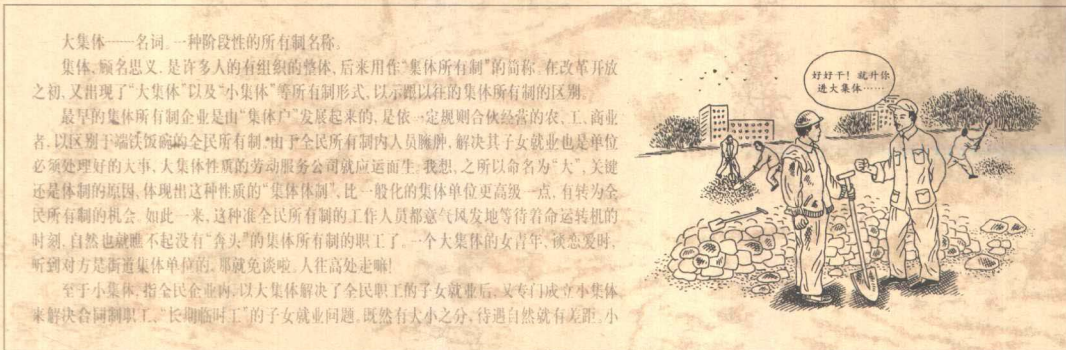 大集体——名词。一种阶段性的所有制名称。
集体,顾名思义,是许多人的有组织的整体,后来用作“集体所有制”的简称。在改革开放
之初,又出现了“大集体”以及“小集体”等所有制形式,以示跟以往的集体所有制的区别。
最早的集体所有制企业是由“集体户”发展起来的,是依一定规则合伙经营的农、工、商业
者,以区别于端铁饭碗的全民所有制。由于全民所有制内人员臃肿,解决其子女就业也是单位
必须处理好的大事,大集体性质的劳动服务公司就应运而生。我想,之所以命名为“大”,关键
还是体制的原因,体现出这种性质的“集体体制”,比一般化的集体单位更高级一点,有转为全
民所有制的机会。如此一来,这种准全民所有制的工作人员都意气风发地等待着命运转机的
时刻,自然也就瞧不起没有“奔头”的集体所有制的职工了。一个大集体的女青年,谈恋爱时,
听到对方是街道集体单位的,那就免谈啦。人往高处走嘛!
至于小集体,指全民企业内,以大集体解决了全民职工的子女就业后,又专门成立小集体
来解决合同制职工、“长期临时工”的子女就业问题。既然有大小之分,待遇自然就有差距。小
好好干!就升你
进大集体……